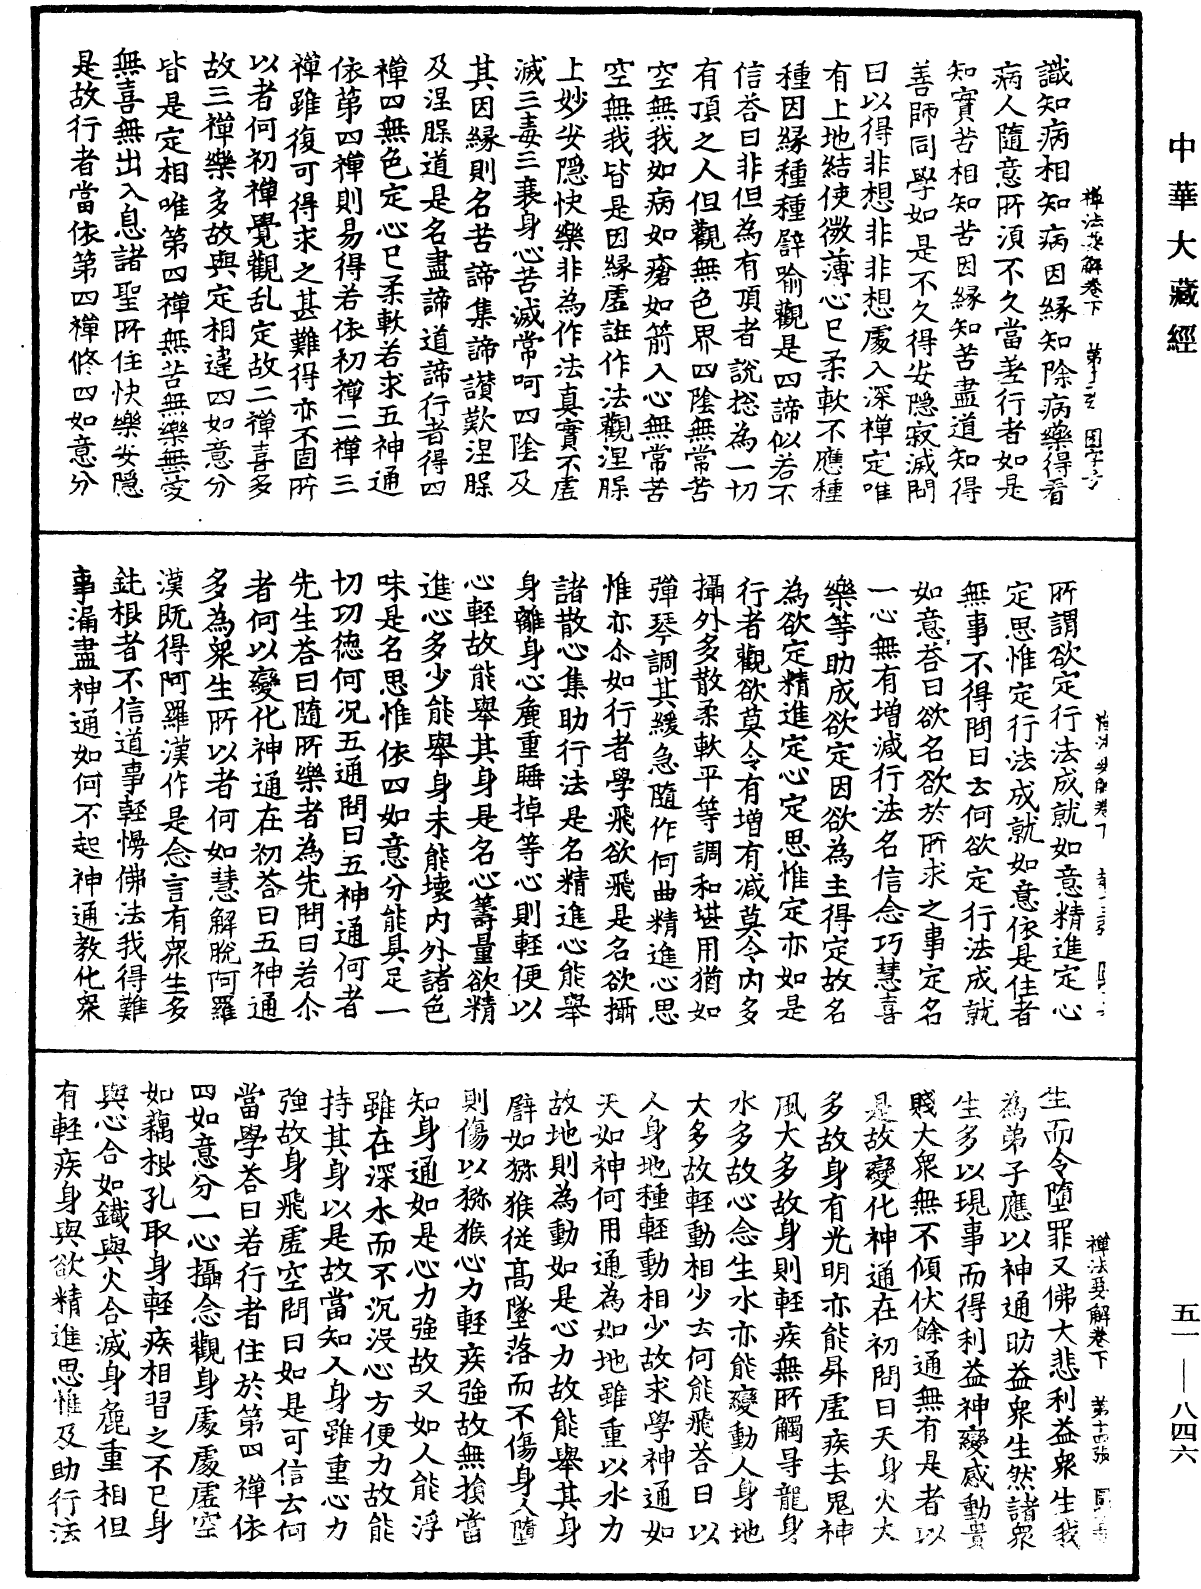 中華大藏經
禪法要解卷下
識知病相知病因緣知除病藥得看
病人隨意所須不久當差行者如是
知實苦相知苦因緣知苦盡道知得
善師同學如是不久得安隱寂滅問
曰以得非想非非想處入深禪定唯
有上地結使微薄心已柔軟不應種
種因緣種種譬喻觀是四諦似若不
信荅曰非但為有頂者說捴為一切
有頂之人但觀無色界四陰無常苦
空無我如病如瘡如箭入心無常苦
空無我皆是因緣虛誑作法觀涅槃
上妙安隱快樂非為作法真實不虛
滅三毒三衰身心苦滅常呵四陰及
其因緣則名苦諦集諦讃歎涅槃
及涅槃道是名盡諦道諦行者得四
禪四無色定心已柔軟若求五神通
依第四禪則易得若依初禪二禪三
禪雖復可得求之甚難得亦不固所
以者何初禪覺觀乱定故二禪喜多
故三禪樂多故與定相違四如意分
皆是定相唯第四禪無苦無樂無憂
無喜無出入息諸聖所住快樂安隱
是故行者當依第四禪修四如意分
所謂欲定行法成就如意精進定心
定思惟定行法成就如意依是住者
無事不得問曰云何欲定行法成就
如意荅曰欲名欲於所求之事定名
一心無有增減行法名信念巧慧喜
樂等助成欲定因欲為主得定故名
為欲定精進定心定思惟定亦如是
行者觀欲莫令有增有減莫令內多
攝外多散柔軟平等調和堪用猶如
彈琴調其緩急隨作何曲精進心思
惟亦尒如行者學飛欲飛是名欲攝
諸散心集助行法是名精進心能舉
身離身心麁重睡掉等心則輕便以
心輕故能舉其身是名心籌量欲精
進心多少能舉身未能壞內外諸色
味是名思惟依四如意分能具足一
切功德何況五通問曰五神通何者
先生荅曰隨所樂者為先問曰若尒
者何以變化神通在初荅曰五神通
多為衆生所以者何如慧解脫阿羅
漢既得阿羅漢作是念言有衆生多
鈍根者不信道事輕慢佛法我得難
事漏盡神通如何不起神通教化衆
生而令墮罪又佛大悲利益衆生我
為弟子應以神通助益衆生然諸衆
生多以現事而得利益神變感動貴
賤大衆無不傾伏餘通無有是者以
是故變化神通在初問曰天身火大
多故身有光明亦能昇虛疾去鬼神
風大多故身則輕疾無所觸㝵龍身
水多故心念生水亦能變動人身地
大多故輕動相少云何能飛荅曰以
人身地種輕動相少故求學神通如
天如神何用通為如地雖重以水力
故地則為動如是心力故能舉其身
譬如猕猴從高墜落而不傷身人墮
則傷以猕猴心力輕疾強故無損當
知身通如是心力強故又如人能浮
雖在深水而不沉沒心方便力故能
持其身以是故當知人身雖重心力
強故身飛虛空問曰如是可信云何
當學荅曰若行者住於第四禪依
四如意分一心攝念觀身處處虛空
如藕根孔取身輕疾相習之不已身
與心合如鐵與火合滅身麁重相但
有輕疾身與欲精進思惟及助行法
禪法要解卷下
五一—八四六